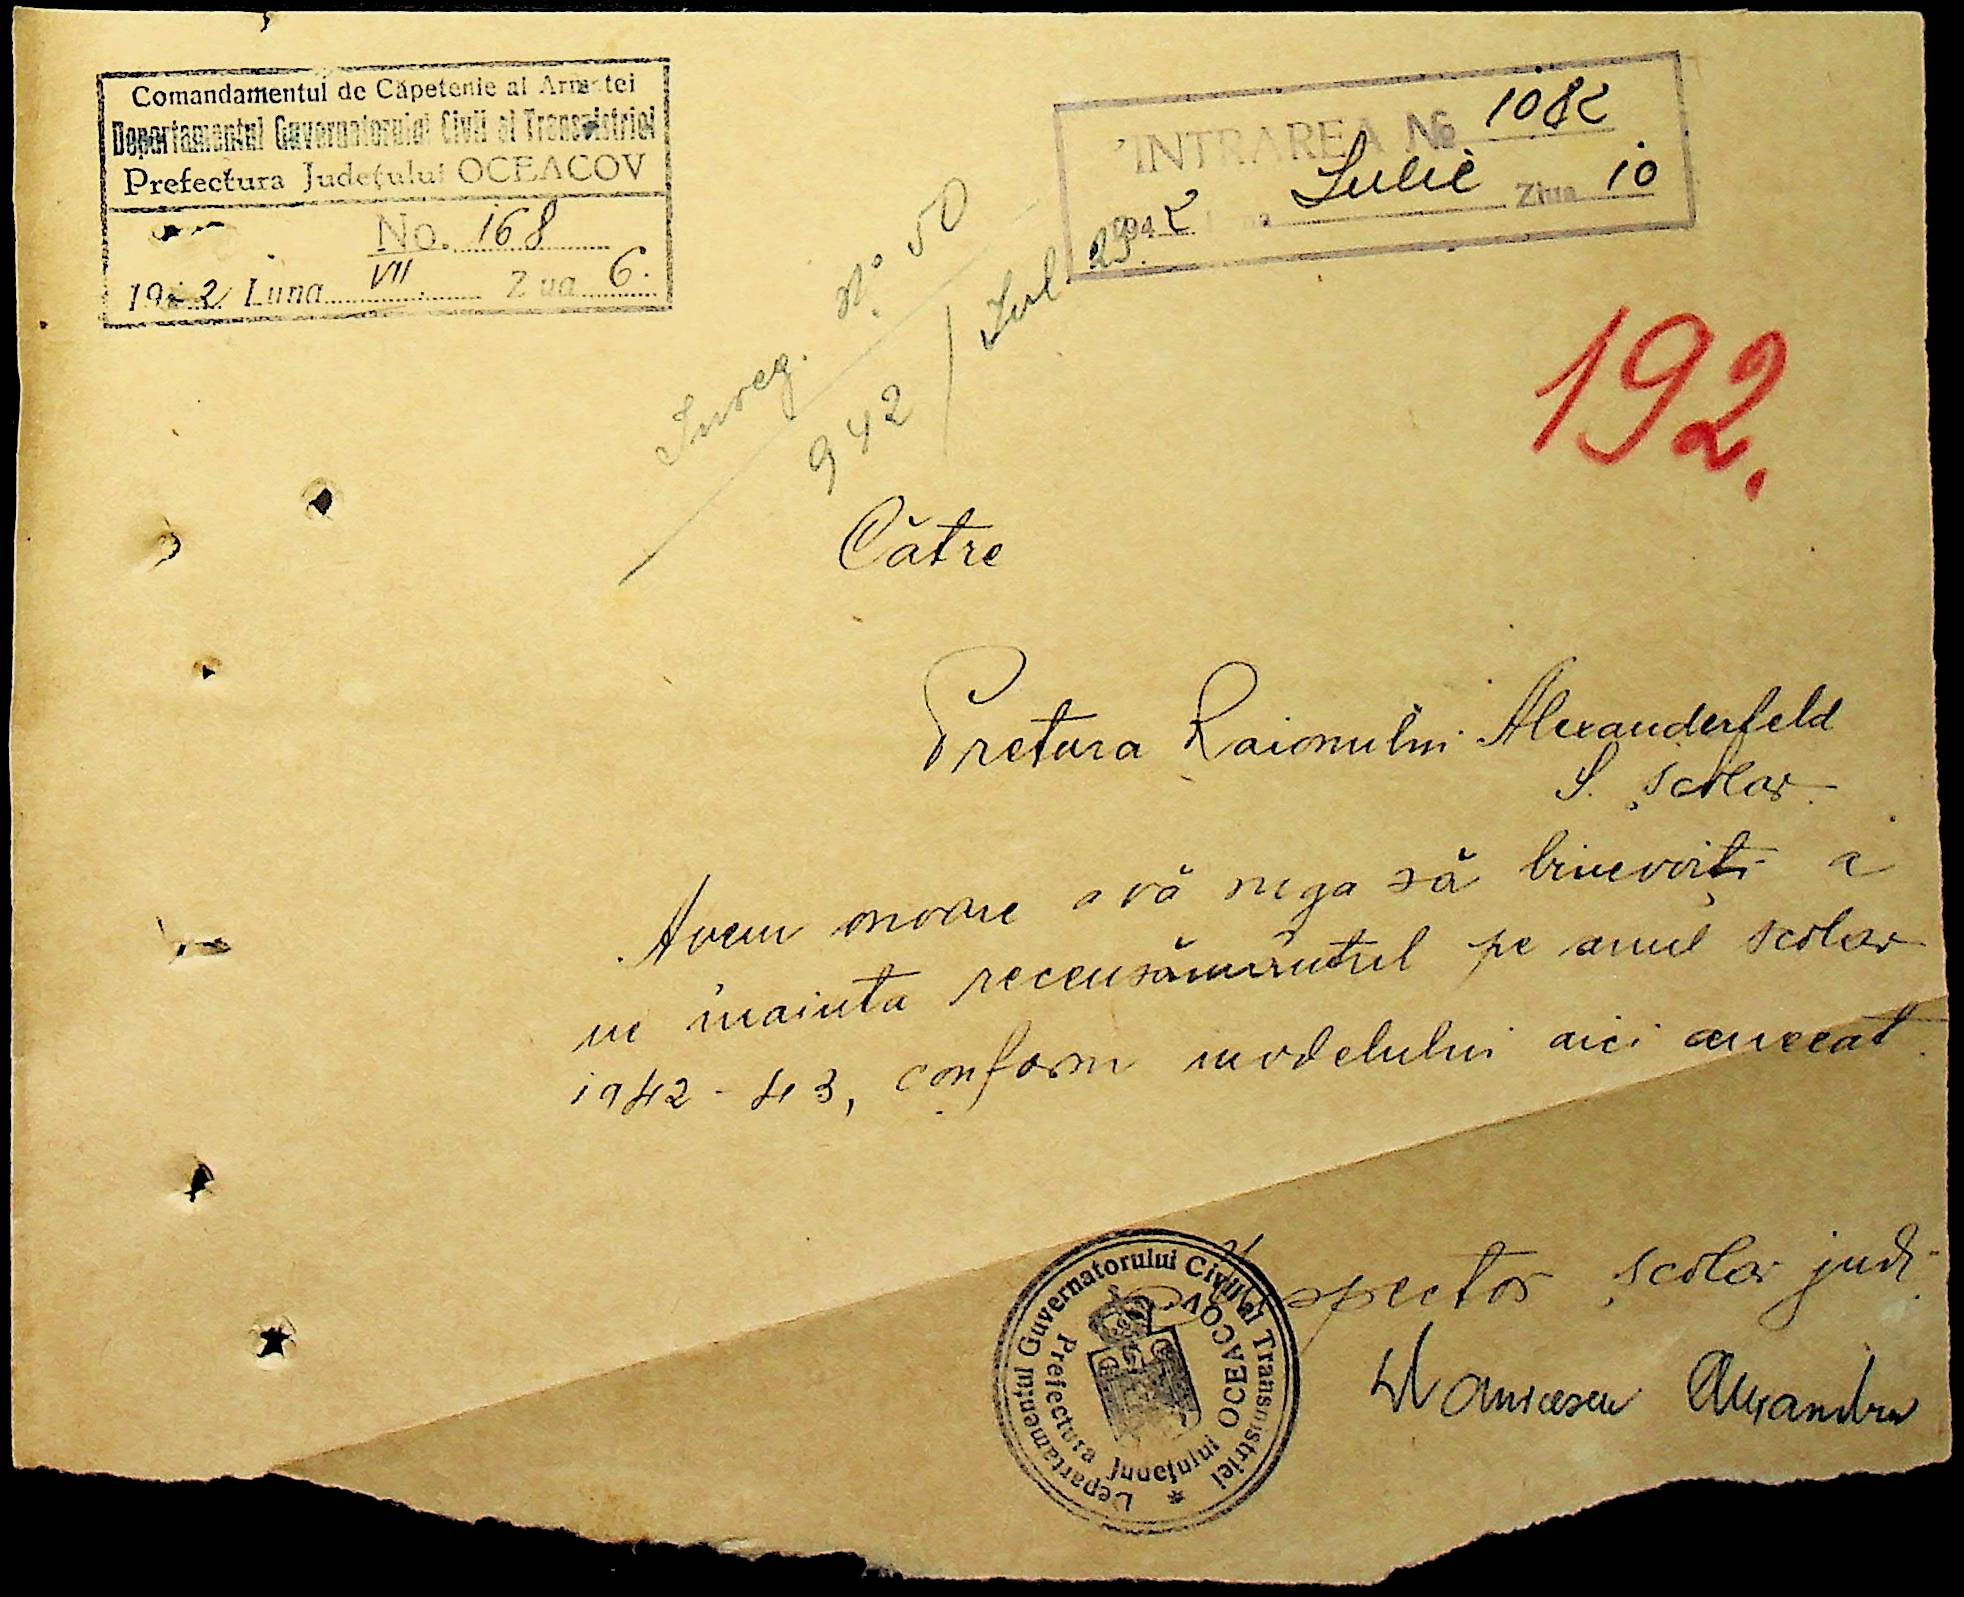 Comandamentul de Căpetenie al Armatei
Departamentul Guvernatorului Civil al Transnistriei
Prefectura Județului OCEACOV
No. 168
1942 Luna VII Ziua 6.
INTRAREA № 1082
1942 Iulie Ziua 10
Inreg. No 50
942 / Iul 23.
192.
Către
Pretura Raionului Alexanderfeld
S. Școlar
Avem onoare a vă ruga să binevoiți a
ne înainta recensământul pe anul școlar
1942-43, conform modelului aici anexat.
Inspector școlar jud.
Alexandru
Departamentul Guvernatorului Civil al Transnistriei
Prefectura Județului OCEACOV